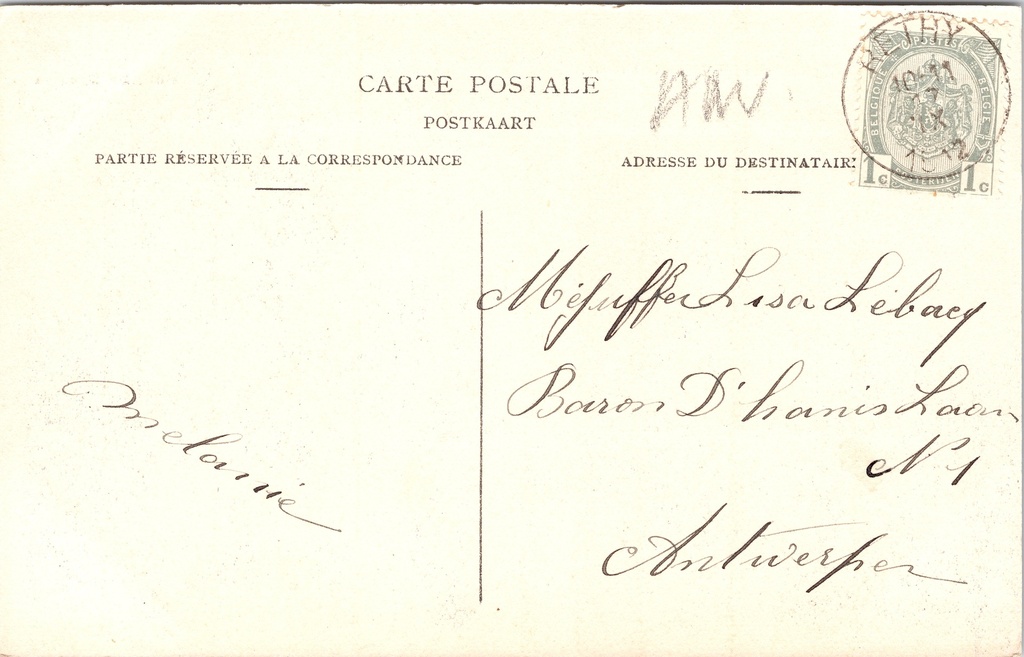 CARTE POSTALE
POSTKAART
PARTIE RÉSERVÉE A LA CORRESPONDANCE
ADRESSE DU DESTINATAIR
RETHY
10-11
1912
POSTES
BELGIQUE
BELGIË
1c
1c
Mejuffer Lisa Lebacq
Baron D'hanis Laan
N 1
Antwerpen
Melanie